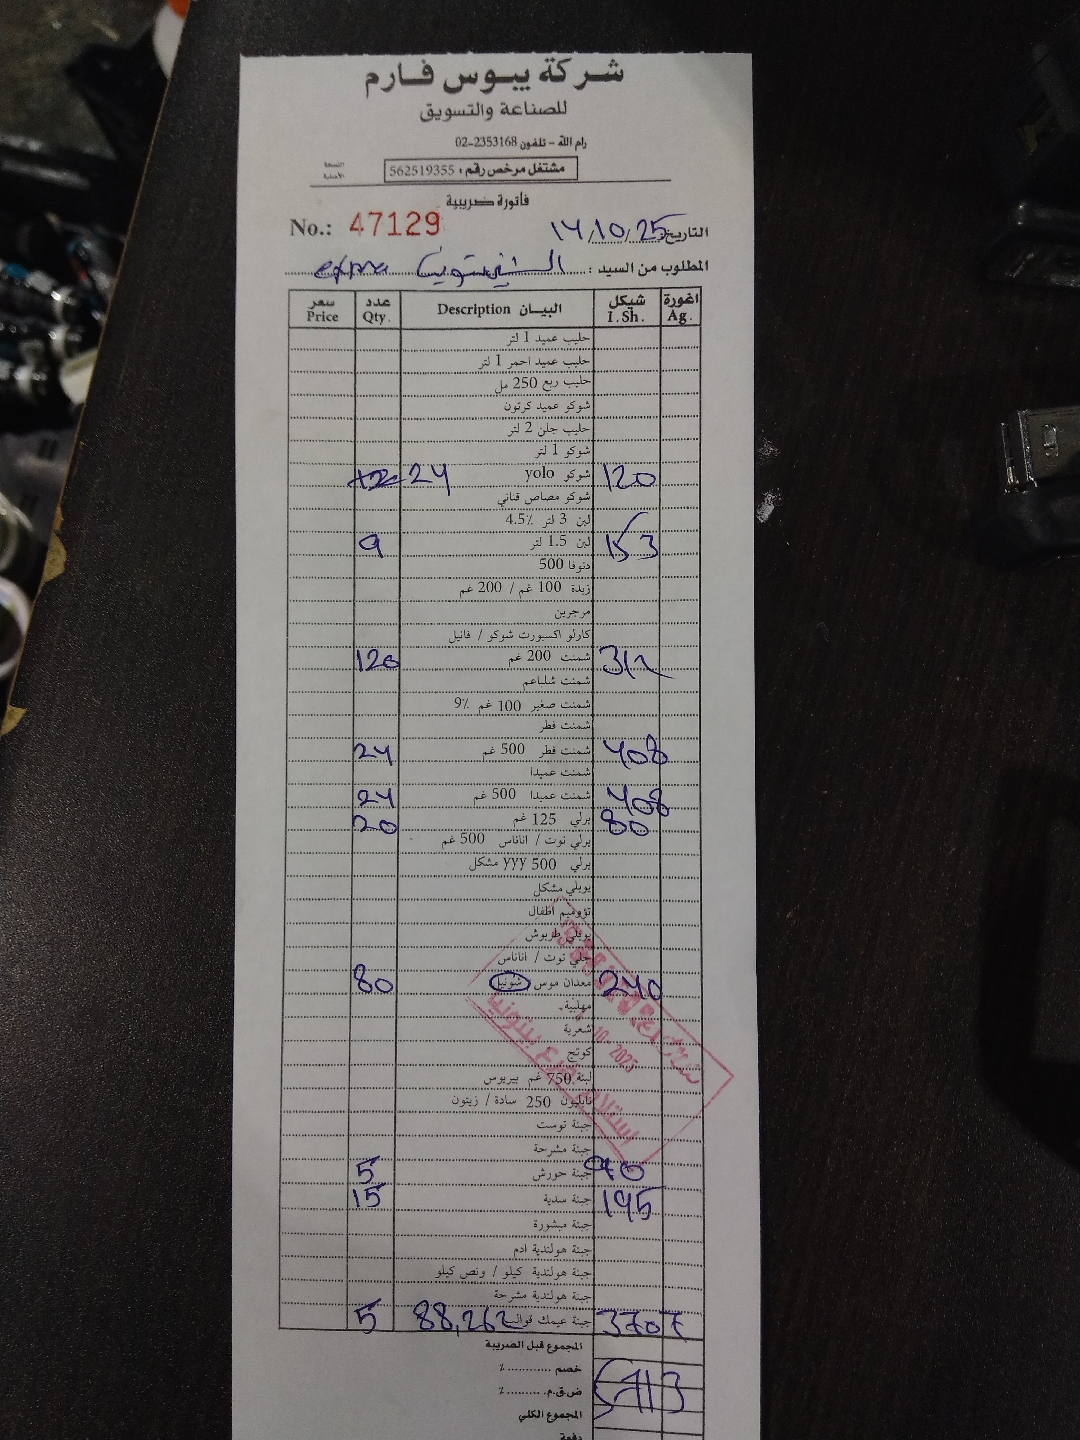 شركة يبوس فارم
للصناعة والتسويق
رام الله - تلفون 02-2353168
النسخة الأصلية
مشتغل مرخص رقم: 562519355
فاتورة ضريبية
No.: 47129
التاريخ: 14/10/25
المطلوب من السيد:
سعر عدد البيـــان شيكل اغورة
Price Qty. Description I.Sh. Ag.
حليب عميد 1 لتر
حليب عميد احمر 1 لتر
حليب ربع 250 مل
شوكو عميد كرتون
حليب جلن 2 لتر
شوكو 1 لتر
24 شوكو yolo 120
شوكو مصاص قناني
لبن 3 لتر 4.5٪
9 لبن 1.5 لتر 153
دنوفا 500
زبدة 100 غم / 200 غم
مرجرين
كارلو اكسبورت شوكو / فانيل
120 شمنت 200 غم 312
شمنت شلباعم
شمنت صغير 100 غم 9٪
شمنت فطر
24 شمنت فطر 500 غم 408
شمنت عميدا
24 شمنت عميدا 500 غم 408
20 برلي 125 غم 80
برلي توت / اناناس 500 غم
برلي 500 yyy مشكل
يوبلي مشكل
اطفال
يوبلي طربوش
جلي توت / اناناس
80 معدان موس شونيا 240
مهلبية
شعرية
كوتج
لبنة 750 غم بيريوس
نابليون 250 سادة / زيتون
جبنة توست
جبنة مشرحة
5 جبنة حورش 90
15 جبنة سدية 195
جبنة مبشورة
جبنة هولندية ادم
جبنة هولندية كيلو / ونص كيلو
جبنة هولندية مشرحة
5 88,262 جبنة عيمك قوالب 3707
المجموع قبل الضريبة
خصم ............ ٪
ض.ق.م. .......... ٪ 5713
المجموع الكلي
دفعة
10 2025